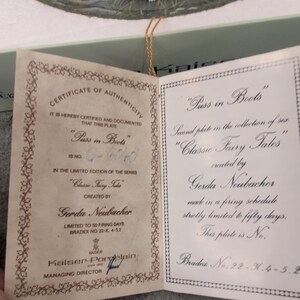 Kaiser
CERTIFICATE OF AUTHENTICITY
IT IS HEREBY CERTIFIED AND DOCUMENTED
THAT THIS PLATE
"Puss in Boots"
IS NO.
IN THE LIMITED EDITION OF THE SERIES
"Classic Fairy Tales"
CREATED BY
Gerda Neubacher
LIMITED TO 50 FIRING DAYS
Kaiser-Porcelain
MANAGING DIRECTOR
"Puss in Boots"
Second plate in the collection of six
"Classic Fairy Tales"
created by
Gerda Neubacher
made in a firing schedule
strictly limited to fifty days.
This plate is No.
Bradex No. 22-K 4-5.2